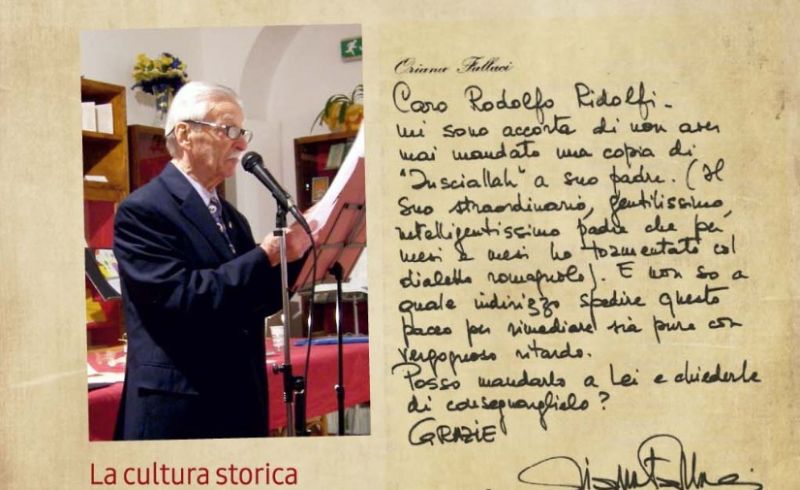 Oriana Fallaci
Caro Rodolfo Ridolfi -
mi sono accorta di non aver
mai mandato una copia di
"Insciallah" a suo padre. (Il
suo straordinario, gentilissimo,
intelligentissimo padre che per
mesi e mesi ho tormentato col
dialetto romagnolo). E non so a
quale indirizzo spedire questo
pacco per rimediare sia pure con
vergognoso ritardo.
Posso mandarlo a Lei e chiederle
di consegnarglielo?
GRAZIE
La cultura storica